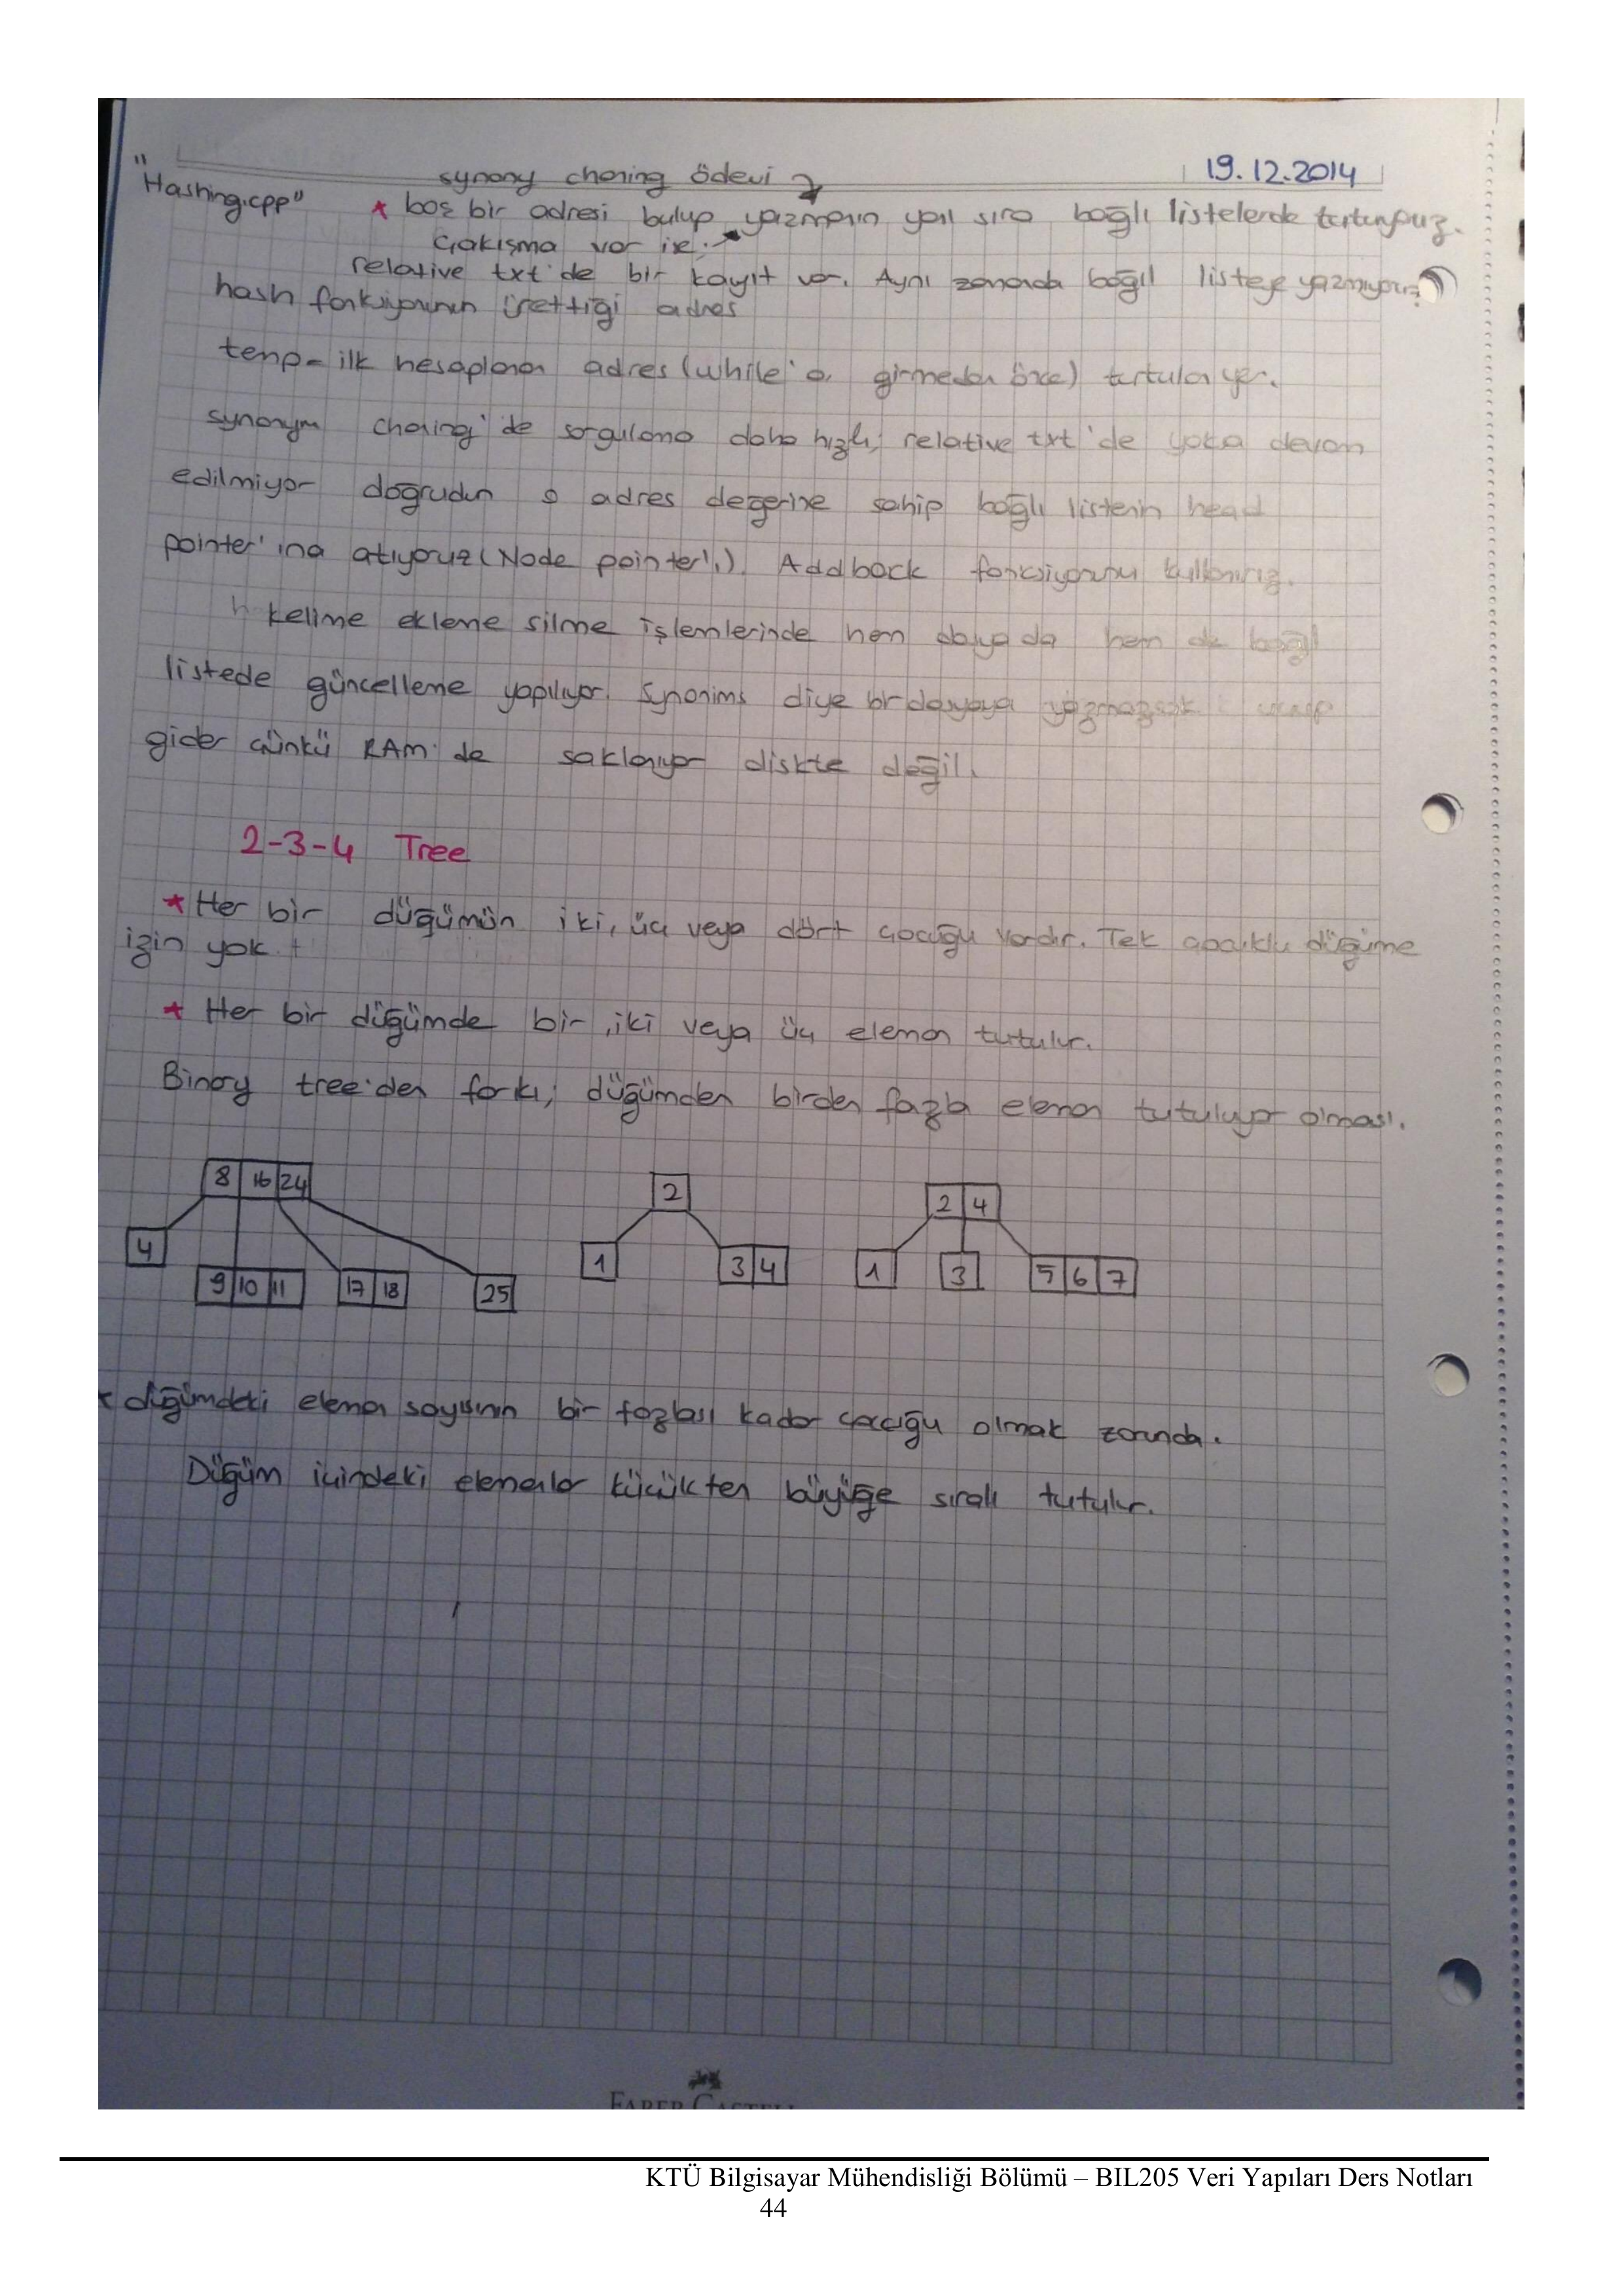 19.12.2014
"Hashing.cpp" synony chaning ödevi
* boş bir adresi bulup yazmanın yanı sıra bağlı listelerde tutuyoruz.
Çakışma var ise;
relative txt'de bir kayıt var. Aynı zamanda bağıl listeye yazmıyoruz
hash fonksiyonunun ürettiği adres
temp = ilk hesaplanan adres (while'a girmeden önce) tutulan yer.
synonym chaning'de sorgulama daha hızlı; relative txt'de devam
edilmiyor doğrudan o adres değerine sahip bağlı listenin head
pointer'ına atıyoruz (Node pointer'ı). Addback fonksiyonunu kullanırız.
kelime ekleme silme işlemlerinde hem dosyada hem de bağıl
listede güncelleme yapılıyor. Synonims diye bir dosyaya yazmazsak
gider çünkü RAM'de saklanıyor diskte değil.
2-3-4 Tree
* Her bir düğümün iki, üç veya dört çocuğu vardır. Tek çocuklu düğüme
izin yok.
* Her bir düğümde bir, iki veya üç eleman tutulur.
Binary tree'den farkı; düğümden birden fazla eleman tutuluyor olması.
8 16 24
2
2 4
4
1
3 4
1
3
5 6 7
9 10 11
17 18
25
* düğümdeki eleman sayısının bir fazlası kadar çocuğu olmak zorunda.
Düğüm içindeki elemanlar küçükten büyüğe sıralı tutulur.
FABER CASTELL
KTÜ Bilgisayar Mühendisliği Bölümü – BIL205 Veri Yapıları Ders Notları
44